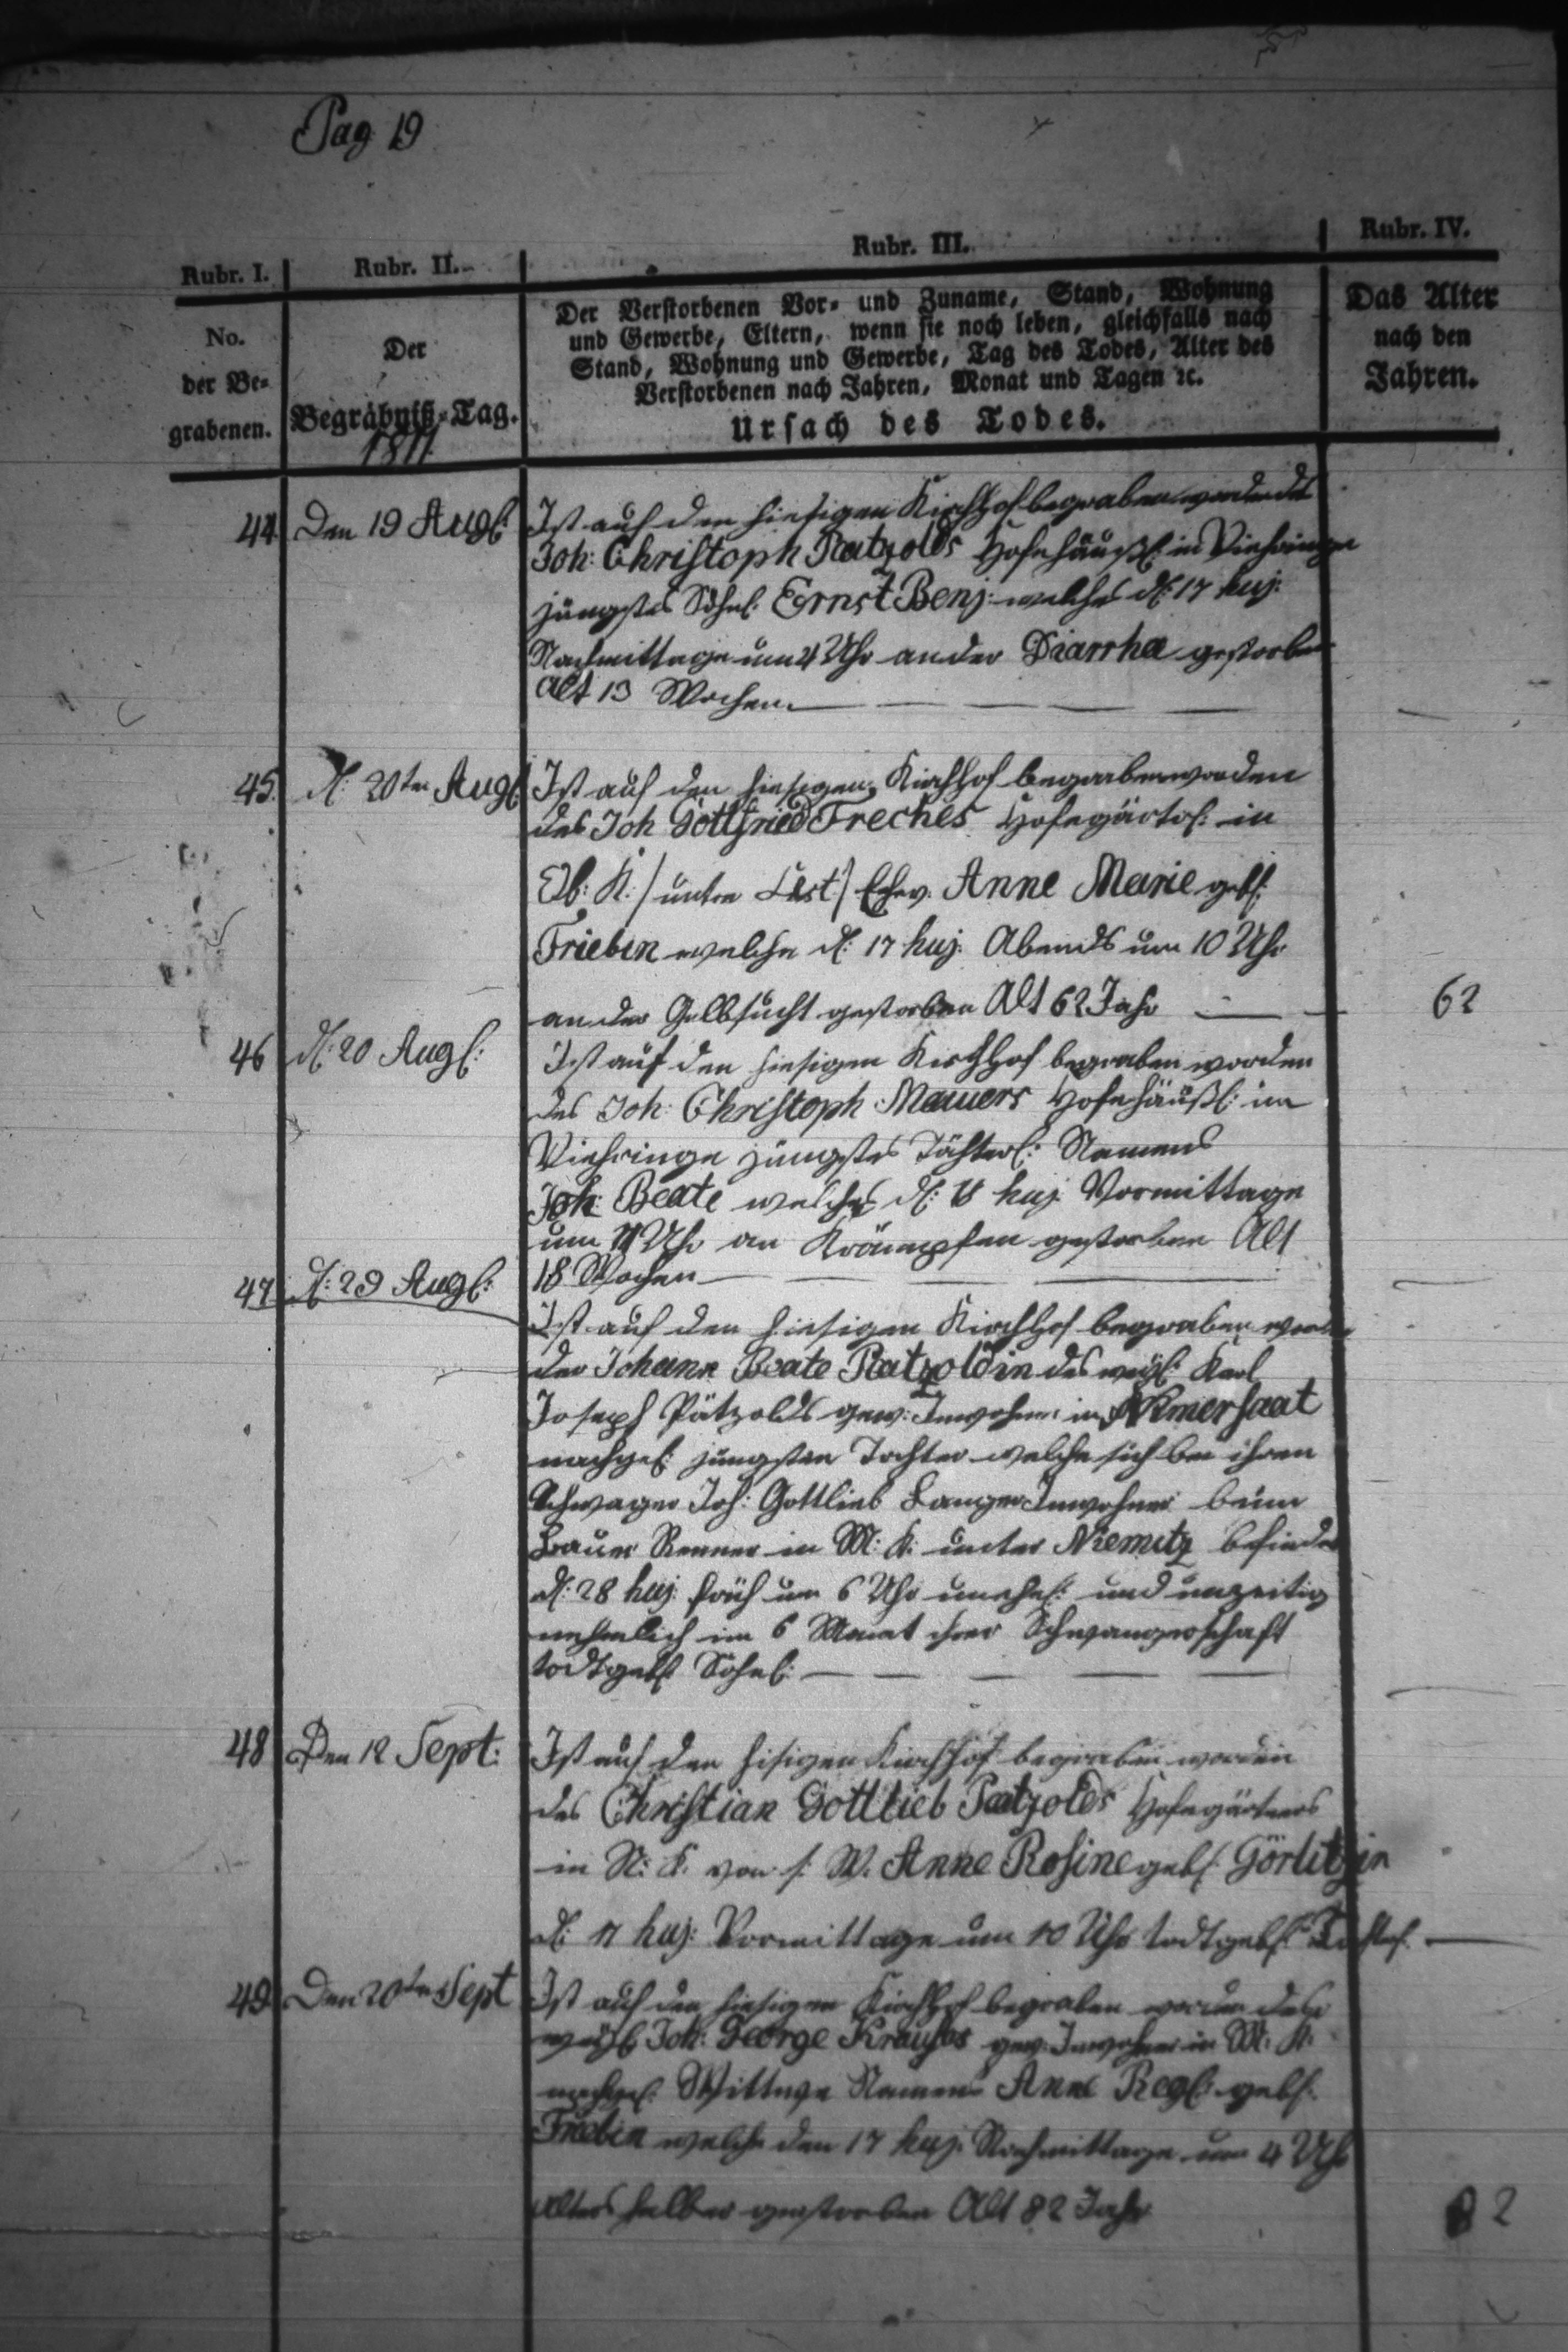 Pag 19
Rubr. I.
Rubr. II.
Rubr. III.
Rubr. IV.
No.
der Be-
grabenen.
Der
Begräbniß-Tag.
1811.
Der Verstorbenen Vor- und Zuname, Stand, Wohnung
und Gewerbe, Eltern, wenn sie noch leben, gleichfalls nach
Stand, Wohnung und Gewerbe, Tag des Todes, Alter des
Verstorbenen nach Jahren, Monat und Tagen ꝛc.
Ursach des Todes.
Das Alter
nach den
Jahren.
44 Den 19 Augl: Ist auf den hiesigen Kirchhof begraben worden des
Joh: Christoph Paetzolds Hofehäußl: in Viehringe
jüngstes Söhnl: Ernst Benj: welches d: 17 huj:
Nachmittage um 4 Uhr an der Diarrhæ gestorben
Alt 13 Wochen.
45. d: 20ten Augl Ist auf den hiesigen Kirchhof begraben worden
des Joh Gottfried Freches Hofegärtn: in
Ob: K: / unter Läst / Ehew. Anne Marie geb:
Frieben welche d: 17 huj: Abends um 10 Uhr
an der Gelbsucht gestorben Alt 62 Jahr 62
46 d: 20 Augl: Ist auf den hiesigen Kirchhof begraben worden
des Joh: Christoph Mauers Hofehäußl: im
Viehringe jüngstes Töchterl: Namens
Joh: Beate welches d: 18 huj: Vormittage
um 11 Uhr an Krämpfen gestorben Alt
18 Wochen
47 d: 29 Augl: Ist auf den hiesigen Kirchhof begraben worden
der Johann Beate Paetzoldin des weyl: Karl
Joseph Pätzolds gew: Inwohn: in
nachgel: jüngsten Tochter welche sich bei ihren
Schwager Joh: Gottlieb Langer Inwohner beim
Bauer Renner in M: K: unter Niemitz befindet
d: 28 huj: früh um 6 Uhr unehel: und unzeitig
nehmlich im 6 Monat ihrer Schwangerschaft
todtgeb: Söhnl:
48 Den 12 Sept: Ist auf den hisigen Kirchhof begraben worden
des Christian Gottlieb Paetzolds Hofegärtners
in N: K. von s: W. Anne Rosine geb: Görlitzin
d: 11 huj: Vormittage um 10 Uhr todtgeb: Töchterl.
49 Den 20ten Sept Ist auf den hiesigen Kirchhof begraben worden des
weyl: Joh: George Krauses gew: Inwohner in M: K:
nachgel: Wittwe Namens Anne Regl: geb:
Frieben welche den 17 huj: Nachmittage um 4 Uhr
Alters halber gestorben Alt 82 Jahr 82